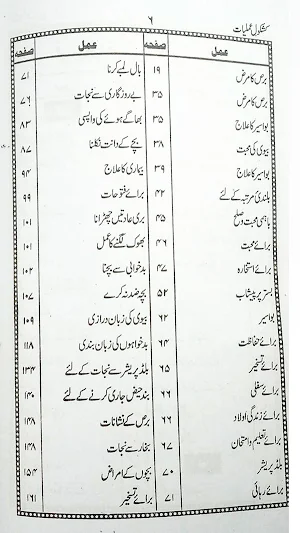 کشکول عملیات ۶
عمل صفحہ عمل صفحہ
برص کا مرض ۱۹ بال لمبے کرنا ۷۱
برص کا مرض ۳۵ بے روزگاری سے نجات ۷۶
بواسیر کا علاج ۳۵ بھاگے ہوئے کی واپسی ۸۳
بیوی کی محبت ۳۸ بچے کے دانت نکلنا ۸۷
بواسیر کا علاج ۳۹ بیماری کا علاج ۹۴
بلندی مرتبہ کے لئے ۴۲ برائے فتوحات ۹۹
باہمی محبت و صلح ۴۵ بری عادتیں چھڑانا ۱۰۱
برائے محبت ۴۶ بھوک لگنے کا عمل ۱۰۱
برائے استخارہ ۴۷ بدخوابی سے بچنا ۱۰۲
بستر پر پیشاب ۵۲ بچہ ضد نہ کرے ۱۰۷
بواسیر ۶۲ بیوی کی زبان درازی ۱۰۹
برائے حفاظت ۶۴ بدخواہوں کی زبان بندی ۱۱۸
برائے تسخیر ۶۵ بلڈ پریشر سے نجات کے لئے ۱۳۳
برائے سفلی ۶۶ بند حیض جاری کرنے کے لئے ۱۴۰
برائے زندگی اولاد ۶۶ برص کے نشانات ۱۴۸
برائے تعلیم و امتحان ۶۷ بخار سے نجات ۱۴۸
بلڈ پریشر ۷۰ بچوں کے امراض ۱۵۴
برائے رہائی ۷۱ برائے تسخیر ۱۶۱